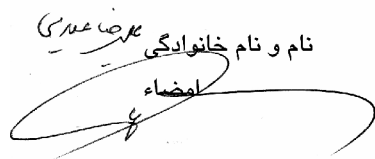 نام و نام خانوادگی علیرضا عیدیی
امضاء